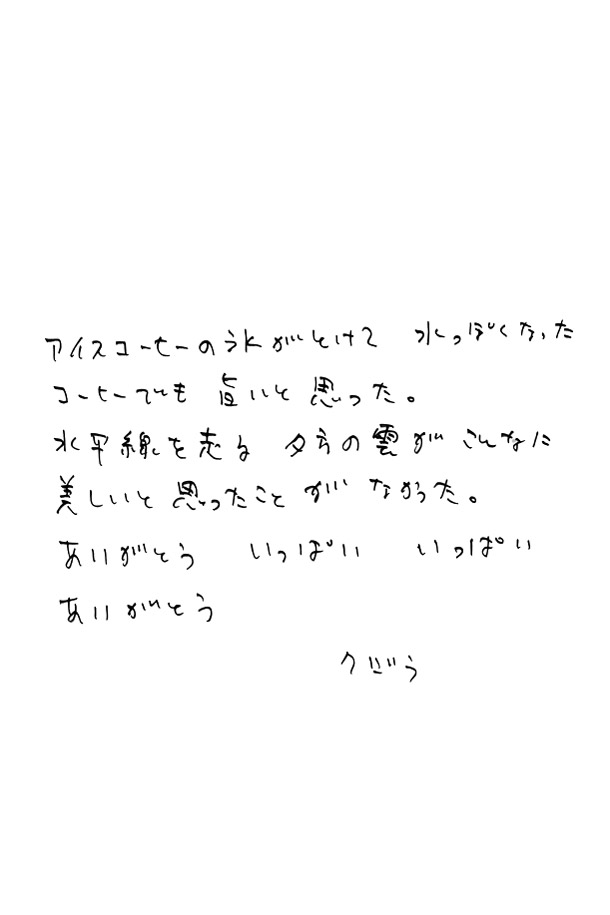 アイスコーヒーの氷がとけて 水っぽくなった
コーヒーでも 旨いと 思った。
水平線を走る 夕方の雲が こんなに
美しいと 思ったこと が なかった。
ありがとう いっぱい いっぱい
ありがとう